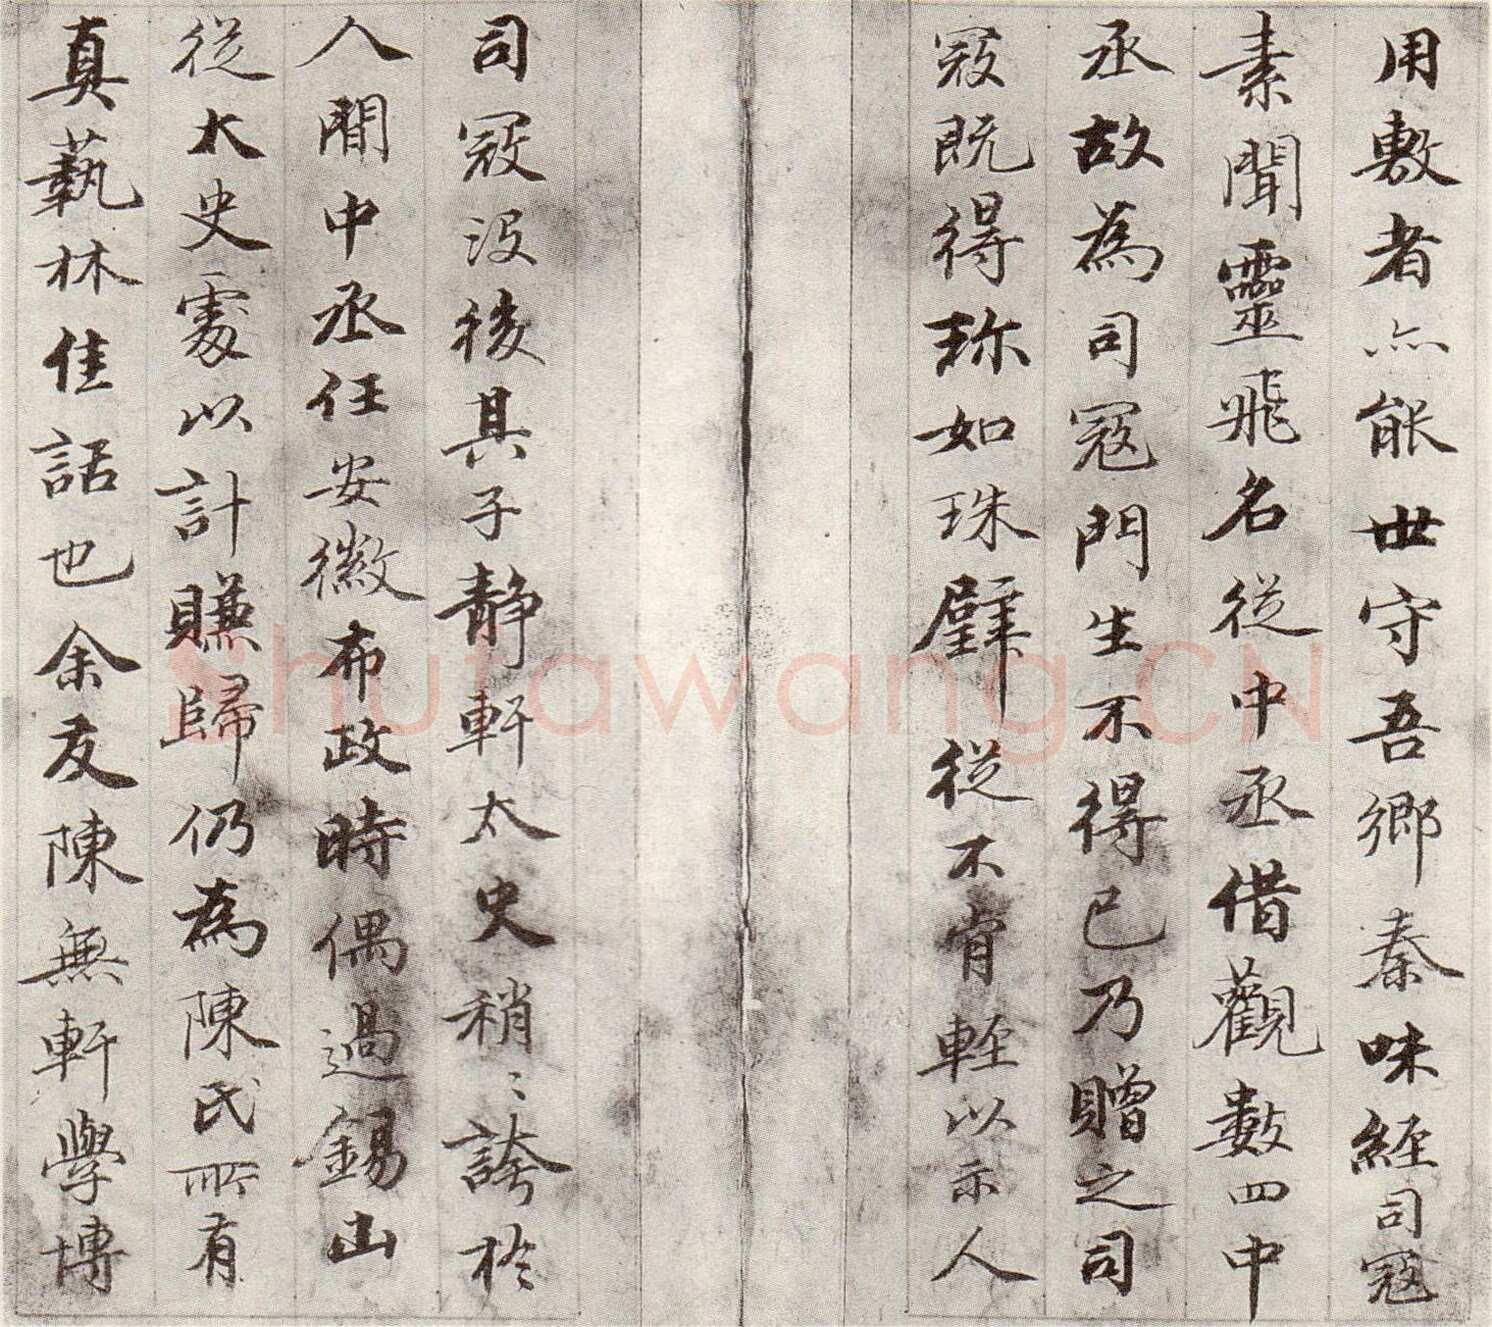 用敷者亦能世守吾鄉秦味經司寇
素聞靈飛名從中丞借觀數四中
丞故為司寇門生不得已乃贈之司
寇既得珎如珠璧從不肯輕以示人
司寇沒後其子靜軒太史稍〻誇於
人間中丞任安徽布政時偶過錫山
從太史處以計賺歸仍為陳氏所有
真藝林佳話也余友陳無軒學博
Shufawang.CN